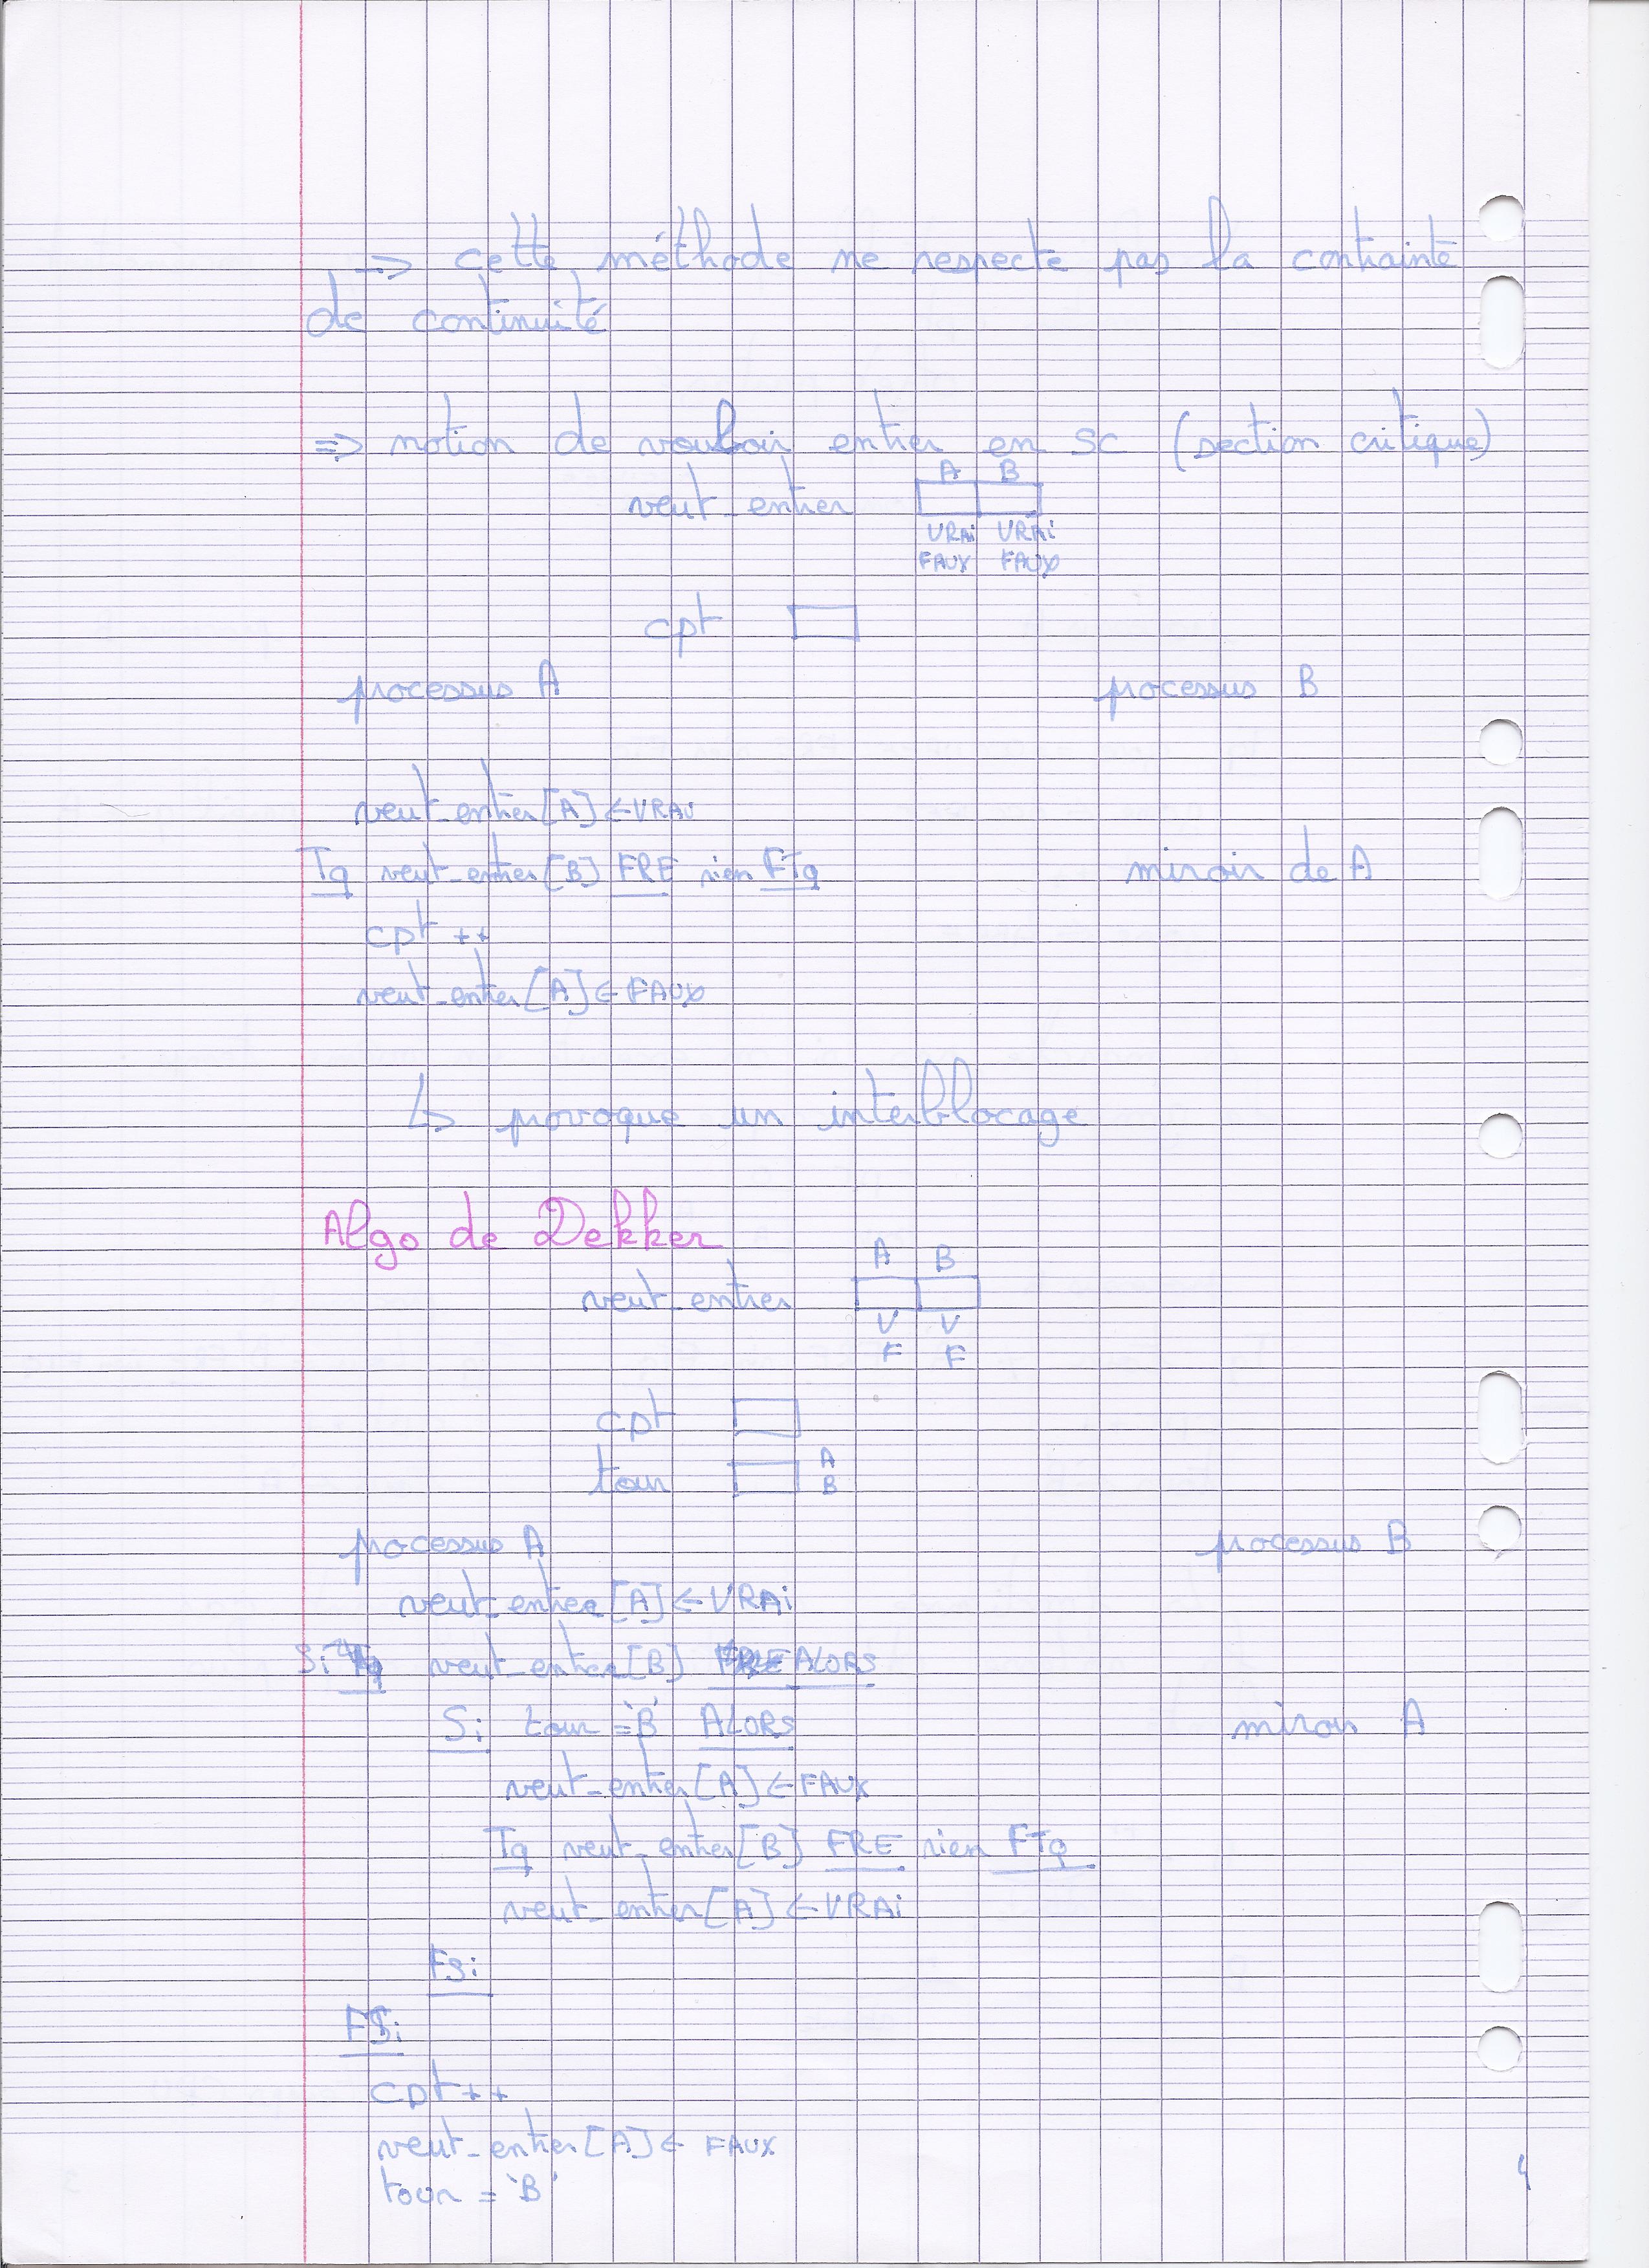 => cette méthode ne respecte pas la contrainte
de continuité
=> notion de vouloir entrer en SC (section critique)
A B
veut_entrer
VRAi VRAi
FAUX FAUX
cpt
processus A processus B
veut_entrer[A] ← VRAi
Tq veut_entrer[B] FRE rien FTq miroir de A
cpt ++
veut_entrer[A] ← FAUX
↳ provoque un interblocage
Algo de Dekker
A B
veut_entrer
V V
F F
cpt
tour A
B
processus A processus B
veut_entrer[A] ← VRAi
Si veut_entrer[B] ALORS
Si tour = 'B' ALORS miroir A
veut_entrer[A] ← FAUX
Tq veut_entrer[B] FRE rien FTq
veut_entrer[A] ← VRAi
FSi
FSi
cpt++
veut_entrer[A] ← FAUX
tour = 'B'
4